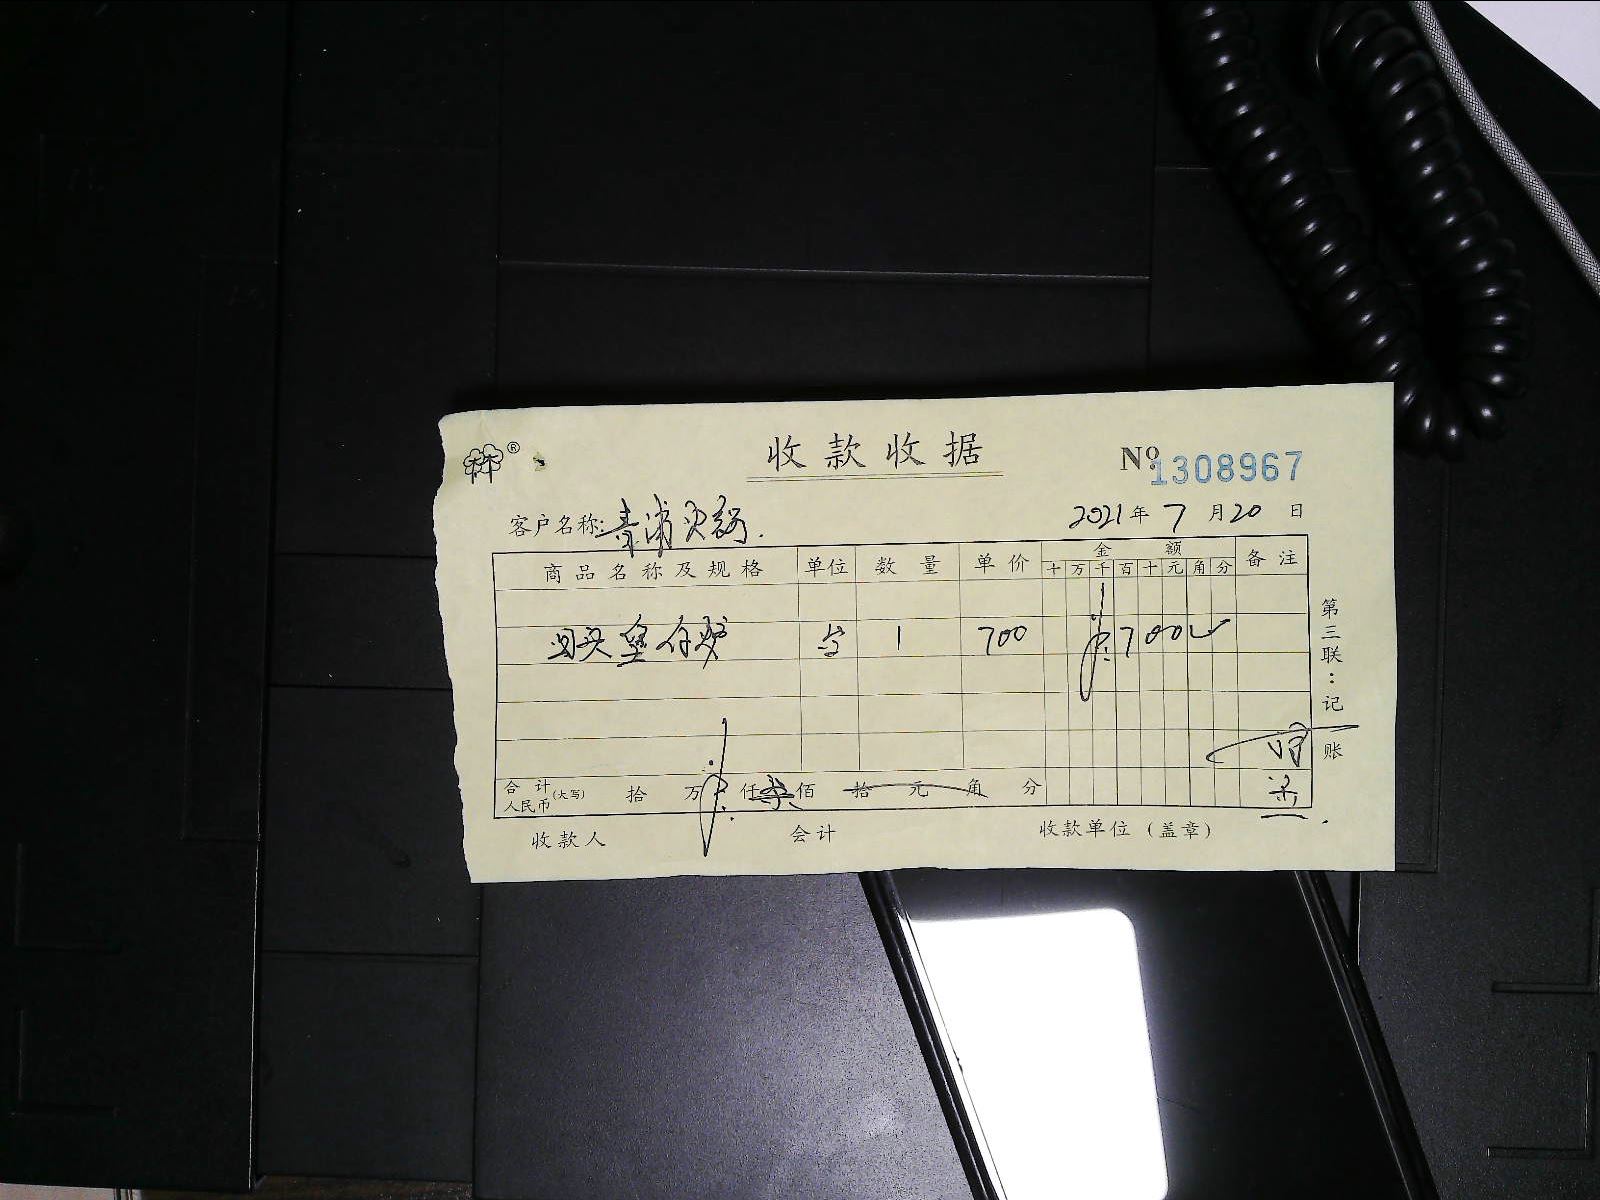 收款收据
®
№ 1308967
客户名称: 青浦火锅.
2021年7月20日
商品名称及规格 单位 数量 单价 金额 备注
十 万 千 百 十 元 角 分
四头煲仔炉 台 1 700 700
合计人民币(大写) 拾 万 仟 柒 佰 拾 元 角 分
收款人 会计 收款单位(盖章)
第三联:记账